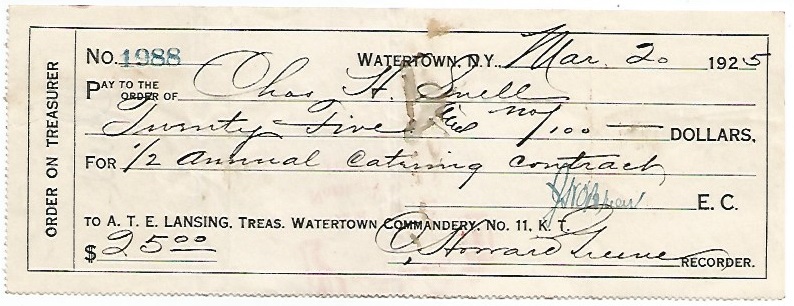 ORDER ON TREASURER
No. 1988 WATERTOWN, N.Y., Mar. 20 1925
PAY TO THE ORDER OF Chas H. Snell
Twenty Five and no/100 DOLLARS,
FOR 1/2 Annual Catering contract
E. C.
TO A. T. E. LANSING, TREAS. WATERTOWN COMMANDERY, No. 11, K. T.
$ 25 00 C. Howard Greene RECORDER.